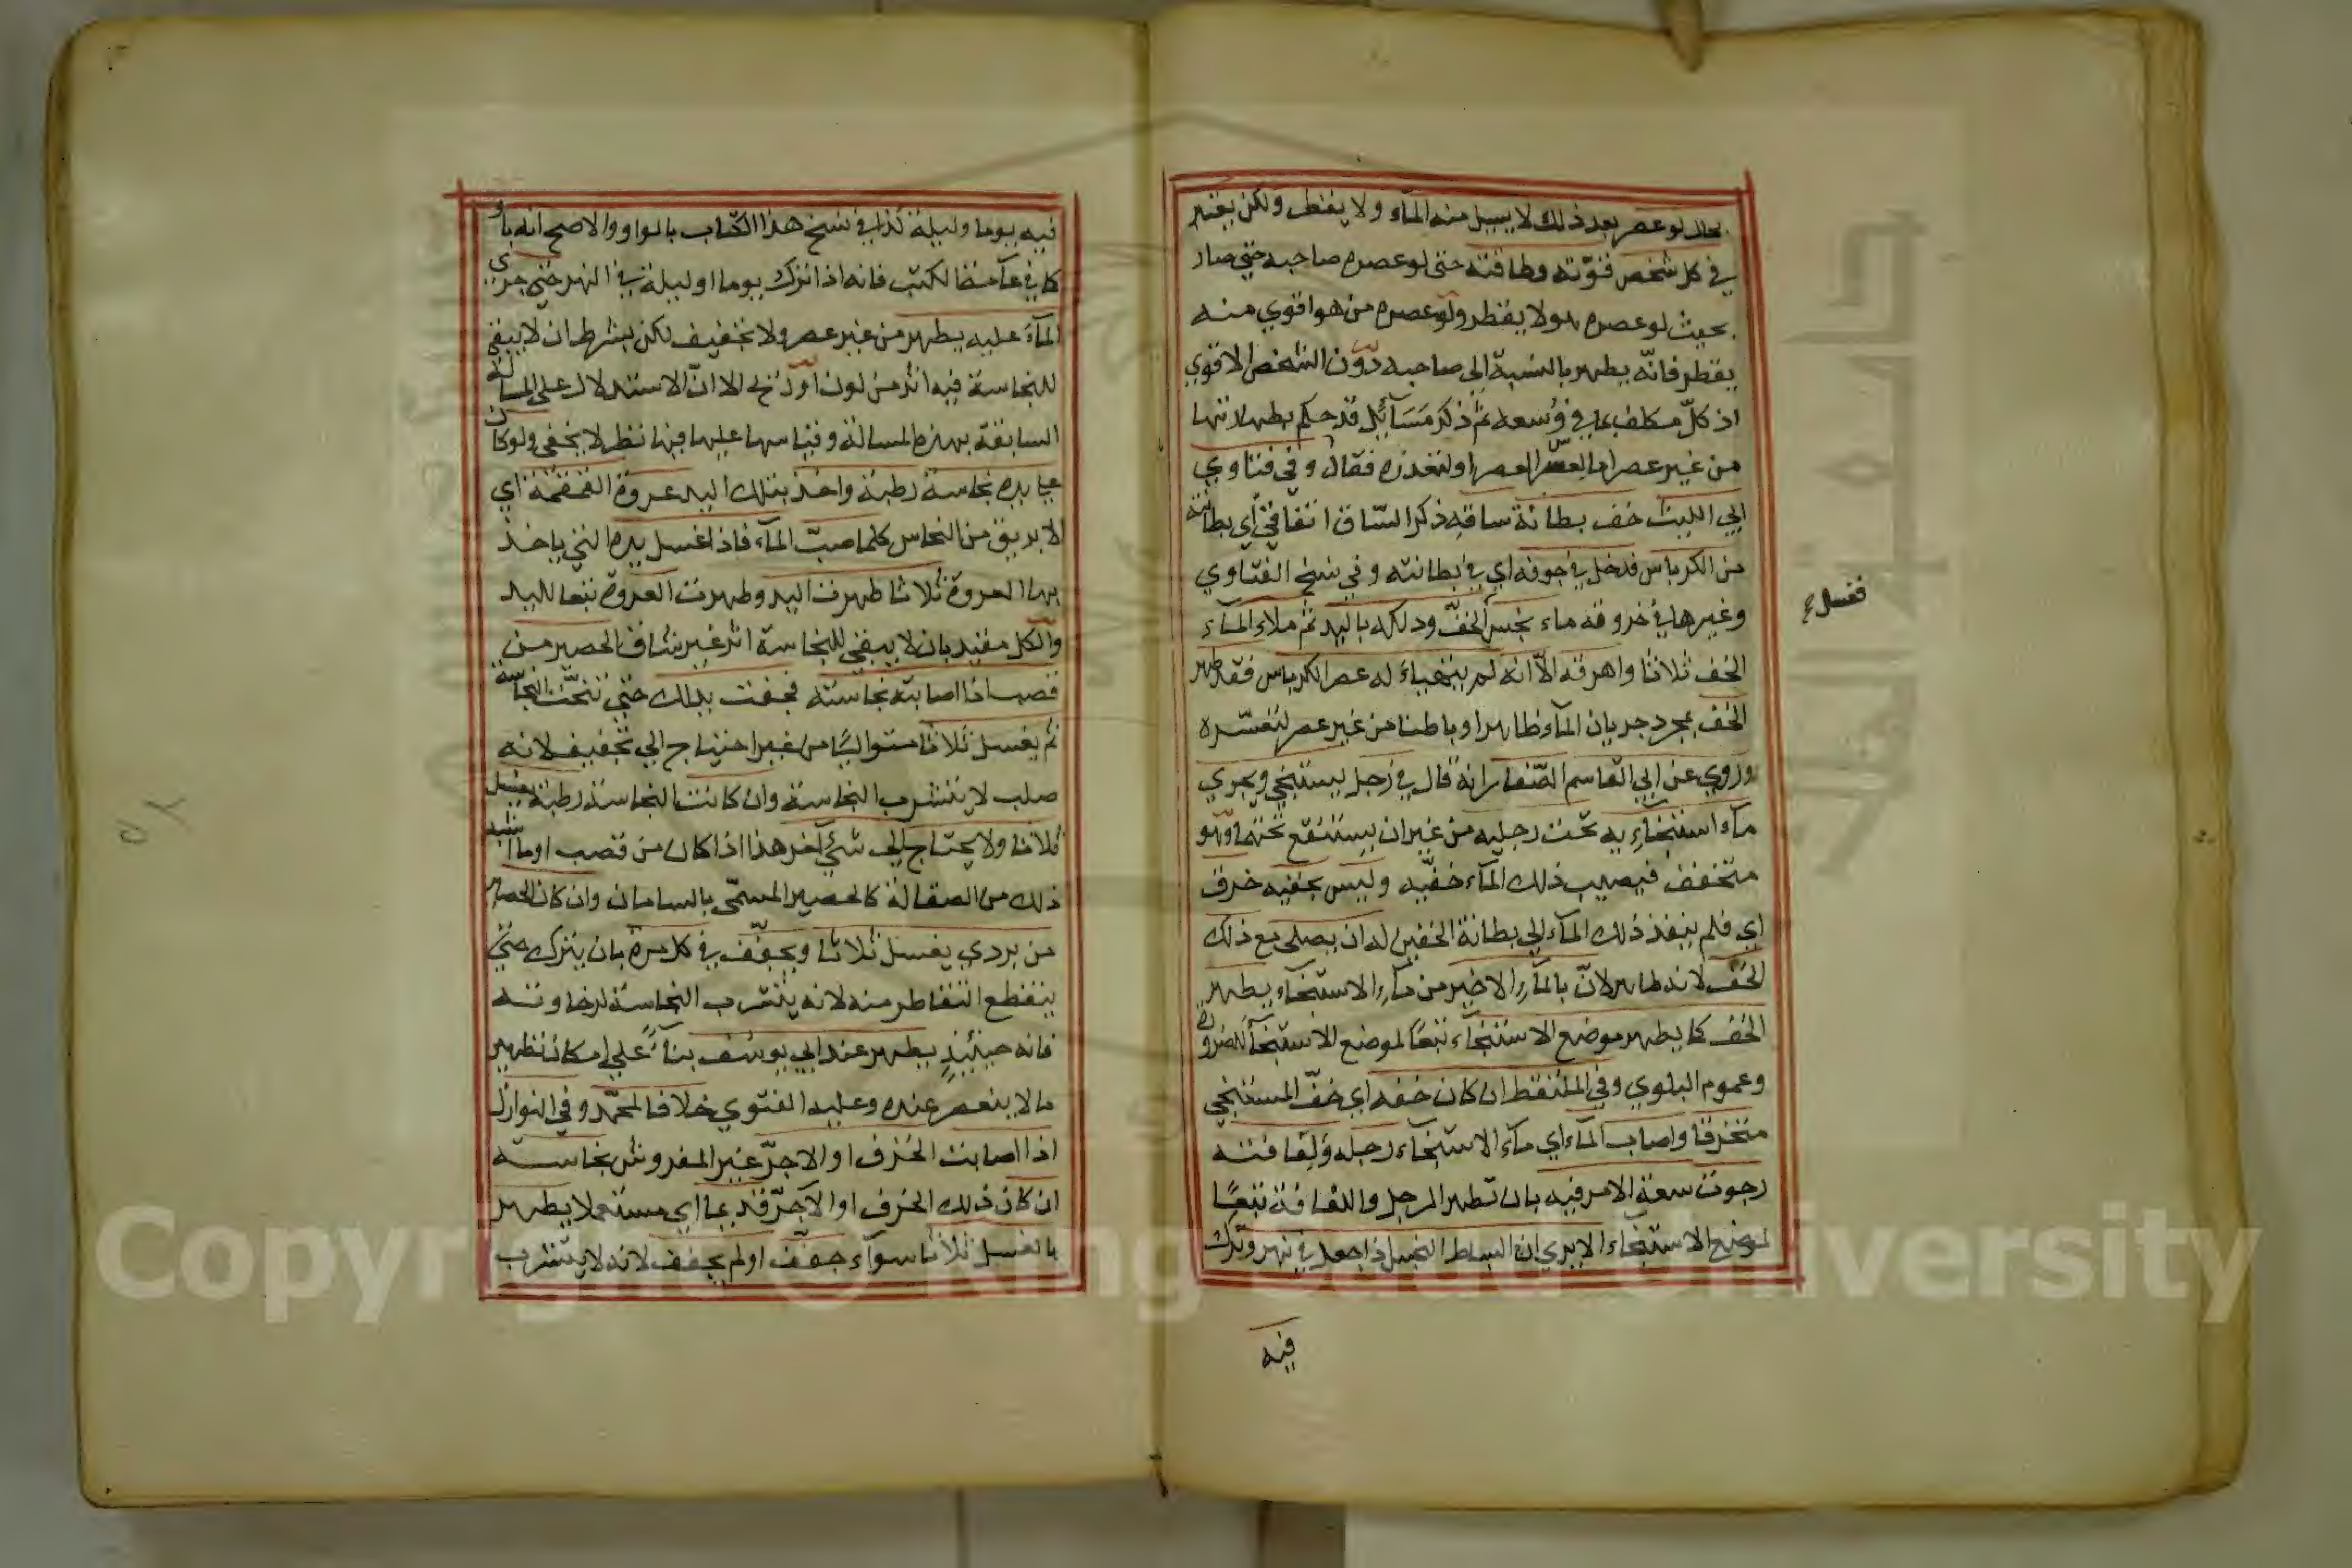 بحال لو عصر بعد ذلك لا يسيل منه الماء ولا يقطر ولكن يعتبر
في كل شخص قوّته وطاقته حتى لو عصره صاحبه حتي صار
بحيث لو عصره هو لا يقطر ولو عصره من هو اقوي منه
يقطر فانّه يطهر بالنسبة الى صاحبه دون الشخص الاقوي
اذ كلّ مكلف بما في وُسعه ثم ذكر مَسَآئِل قد حكم بطهارتها
من غير عصر اما لعسر العصر او لتعذره فقال وفي فتاوي
ابي الليث خف بطانة ساقه ذكر السّاق اتفاقيّ أي بطانته
من الكرباس فدخل في جوفه اي في بطانته وفي نسخ الفتاوي
وغيرها في خروقه ماء نجس الخفّ ودلكه باليد ثم ملاء المآء
فغسل
الخف ثلاثا واهرقه الاّ انه لم يتهياء له عصر الكرباس فقد طهر
الخف بمجرد جريان المآء ظاهرا وباطنا من غير عصر لتعسّره
وروي عن ابي القاسم الصّفار انه قال في رجل يستنجي ويجري
مآء استنجآئه تحت رجليه من غير ان يستنقع تحتهما وهو
متخفف فيصيب ذلك المآء خفّيه وليس بخفيه خرق
اي فلم ينفذ ذلك المآء الي بطانة الخفين له ان يصلى مع ذلك
الخف لانه طاهر لانّ بالمآء الاخير من مآء الاستنجآء يطهر
الخف كما يطهر موضع الاستنجآء تبعًا لموضع الاستنجآء للضرورة
وعموم البلوي وفي الملتقط ان كان خفه اي خفّ المستنجي
متخرقا واصاب المآء اي مآء الاستنجآء رجله ولفافته
رجوت سعة الامر فيه بان تطهر الرجل واللفافة تبعًا
لموضع الاستنجآء الا يري ان البساط النجس اذا جعل في نهر وترك
فيه
فيه يوما وليلة كذا في نسخ هذا الكتاب بالواو والاصح انه باو
كما في عآمة الكتب فانه اذا ترك يوما او ليلة في النهر حتي جري
المآء عليه يطهر من غير عصر ولا تجفيف لكن بشرط ان لا يبقى
للنجاسة فيه اثر من لون او ريح الا انّ الاستدلال على المسالة
السابقة بهذه المسالة وقياسها عليها فيها نظر لا يخفى ولو كان
علي يده نجاسة رطبة واخذ بتلك اليد عروة القمقمة اي
الابريق من النحاس كلما صبّ المآء فاذا غسل يده التي ياخذ
بها العروة ثلاثا طهرت اليد وطهرت العروة تبعا لليد
والكل مقيد بان لا يبقى للنجاسة اثر غير شاق الحصير من
قصب اذا اصابته نجاسة فجفت يدلك حتي تنحّت النجاسة
ثم يغسل ثلاثا متواليًا من غير احتياج الي تجفيف لانه
صلب لا يتشرب النجاسة وان كانت النجاسة رطبة يغسل
ثلاثا ولا يحتاج الي شيء اخر هذا اذا كان من قصب او ما اشبه
ذلك من الصقالة كالحصير المسمّى بالسامان وان كان الحصير
من بردي يغسل ثلاثا ويجفّف في كل مرة بان يترك حتي
ينقطع التقاطر منه لانه يتشرب النجاسة لرخاوته
فانه حينئذٍ يطهر عند ابي يوسُف بنآءً علي امكان تطهير
ما لا ينعصر عنده وعليه الفتوي خلافا لمحمّد وفي النوازل
اذا اصابت الخزف او الاجرّ غير المفروش نجاسة
ان كان ذلك الخزف او الآجرّ قديما اي مستعملا يطهر
بالغسل ثلاثا سوآء جفّف او لم يجفف لانه لا يتشرب
Copyright © King Saud University